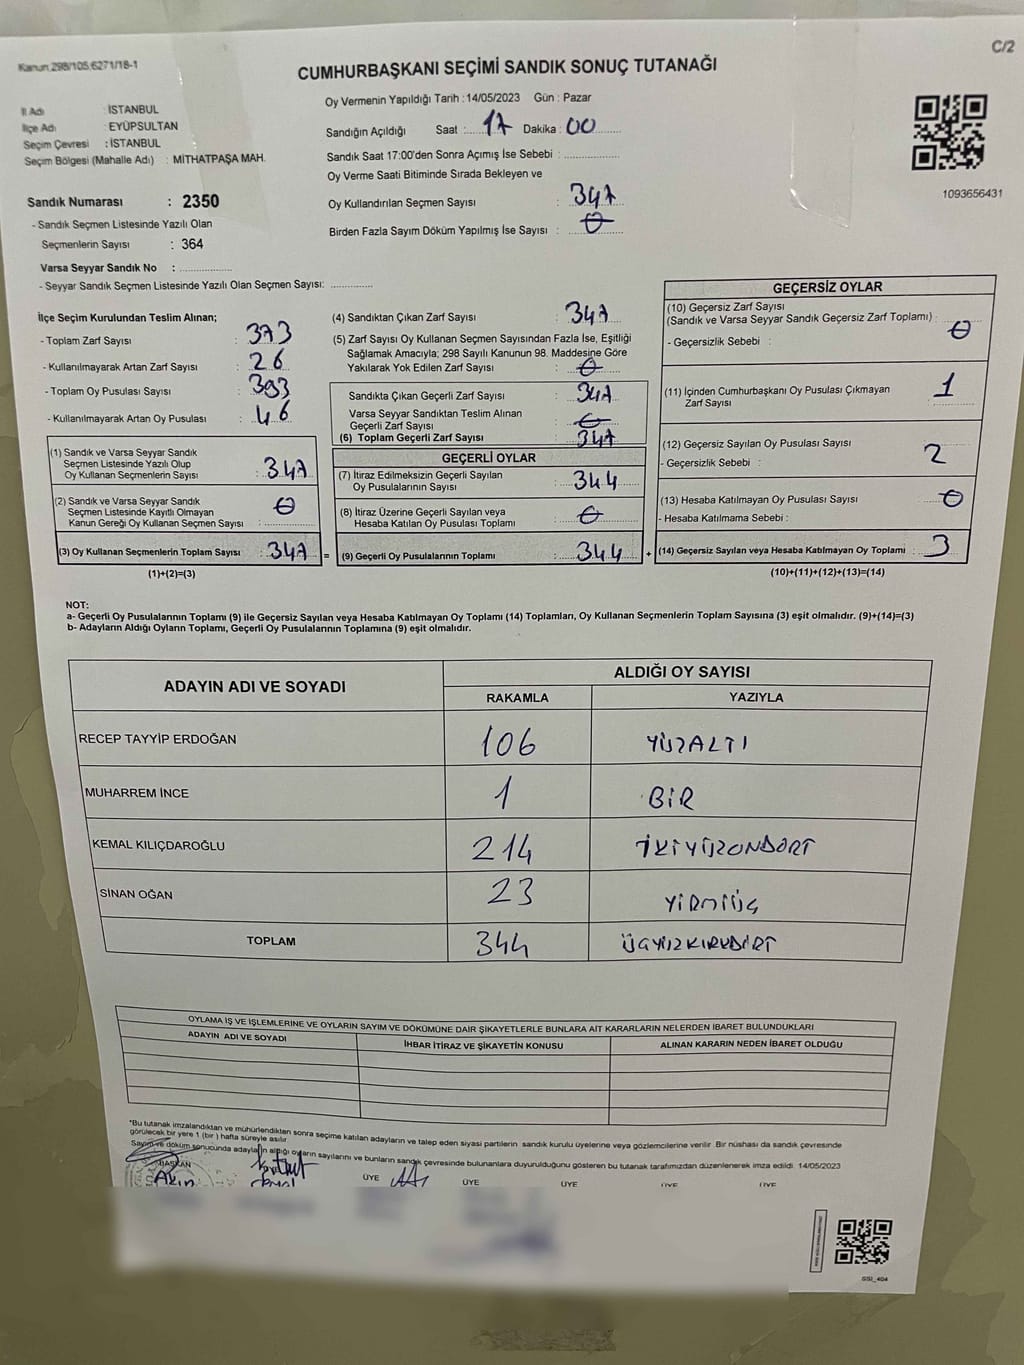 C/2
Kanun:298/105;6271/18-1
CUMHURBAŞKANI SEÇİMİ SANDIK SONUÇ TUTANAĞI
İl Adı : İSTANBUL
İlçe Adı : EYÜPSULTAN
Seçim Çevresi : İSTANBUL
Seçim Bölgesi (Mahalle Adı) : MİTHATPAŞA MAH.
Oy Vermenin Yapıldığı Tarih :14/05/2023 Gün : Pazar
Sandığın Açıldığı Saat : 17 Dakika : 00
Sandık Saat 17:00'den Sonra Açımış İse Sebebi :
Oy Verme Saati Bitiminde Sırada Bekleyen ve
Oy Kullandırılan Seçmen Sayısı : 347
Birden Fazla Sayım Döküm Yapılmış İse Sayısı : 0
1093656431
Sandık Numarası : 2350
- Sandık Seçmen Listesinde Yazılı Olan
Seçmenlerin Sayısı : 364
Varsa Seyyar Sandık No :
- Seyyar Sandık Seçmen Listesinde Yazılı Olan Seçmen Sayısı:
İlçe Seçim Kurulundan Teslim Alınan;
- Toplam Zarf Sayısı : 373
- Kullanılmayarak Artan Zarf Sayısı : 26
- Toplam Oy Pusulası Sayısı : 393
- Kullanılmayarak Artan Oy Pusulası : 46
(1) Sandık ve Varsa Seyyar Sandık
Seçmen Listesinde Yazılı Olup
Oy Kullanan Seçmenlerin Sayısı : 347
(2) Sandık ve Varsa Seyyar Sandık
Seçmen Listesinde Kayıtlı Olmayan
Kanun Gereği Oy Kullanan Seçmen Sayısı : 0
(3) Oy Kullanan Seçmenlerin Toplam Sayısı : 347 =
(1)+(2)=(3)
(4) Sandıktan Çıkan Zarf Sayısı : 347
(5) Zarf Sayısı Oy Kullanan Seçmen Sayısından Fazla İse, Eşitliği
Sağlamak Amacıyla; 298 Sayılı Kanunun 98. Maddesine Göre
Yakılarak Yok Edilen Zarf Sayısı : 0
Sandıkta Çıkan Geçerli Zarf Sayısı : 347
Varsa Seyyar Sandıktan Teslim Alınan
Geçerli Zarf Sayısı : 0
(6) Toplam Geçerli Zarf Sayısı : 347
GEÇERLİ OYLAR
(7) İtiraz Edilmeksizin Geçerli Sayılan
Oy Pusulalarının Sayısı : 344
(8) İtiraz Üzerine Geçerli Sayılan veya
Hesaba Katılan Oy Pusulası Toplamı : 0
(9) Geçerli Oy Pusulalarının Toplamı : 344 +
GEÇERSİZ OYLAR
(10) Geçersiz Zarf Sayısı
(Sandık ve Varsa Seyyar Sandık Geçersiz Zarf Toplamı) : 0
- Geçersizlik Sebebi :
(11) İçinden Cumhurbaşkanı Oy Pusulası Çıkmayan
Zarf Sayısı : 1
(12) Geçersiz Sayılan Oy Pusulası Sayısı : 2
- Geçersizlik Sebebi :
(13) Hesaba Katılmayan Oy Pusulası Sayısı : 0
- Hesaba Katılmama Sebebi :
(14) Geçersiz Sayılan veya Hesaba Katılmayan Oy Toplamı : 3
(10)+(11)+(12)+(13)=(14)
NOT:
a- Geçerli Oy Pusulalarının Toplamı (9) ile Geçersiz Sayılan veya Hesaba Katılmayan Oy Toplamı (14) Toplamları, Oy Kullanan Seçmenlerin Toplam Sayısına (3) eşit olmalıdır. (9)+(14)=(3)
b- Adayların Aldığı Oyların Toplamı, Geçerli Oy Pusulalarının Toplamına (9) eşit olmalıdır.
ADAYIN ADI VE SOYADI ALDIĞI OY SAYISI
RAKAMLA YAZIYLA
RECEP TAYYİP ERDOĞAN 106 YÜZALTI
MUHARREM İNCE 1 BİR
KEMAL KILIÇDAROĞLU 214 İKİYÜZONDÖRT
SİNAN OĞAN 23 YİRMİÜÇ
TOPLAM 344 ÜÇYÜZKIRKDÖRT
OYLAMA İŞ VE İŞLEMLERİNE VE OYLARIN SAYIM VE DÖKÜMÜNE DAİR ŞİKAYETLERLE BUNLARA AİT KARARLARIN NELERDEN İBARET BULUNDUKLARI
ADAYIN ADI VE SOYADI İHBAR İTİRAZ VE ŞİKAYETİN KONUSU ALINAN KARARIN NEDEN İBARET OLDUĞU
*Bu tutanak imzalandıktan ve mühürlendikten sonra seçime katılan adayların ve talep eden siyasi partilerin sandık kurulu üyelerine veya gözlemcilerine verilir. Bir nüshası da sandık çevresinde
görülecek bir yere 1 (bir ) hafta süreyle asılır.
Sayım ve döküm sonucunda adayların aldığı oyların sayılarını ve bunların sandık çevresinde bulunanlara duyurulduğunu gösteren bu tutanak tarafımızdan düzenlenerek imza edildi. 14/05/2023
BAŞKAN ÜYE ÜYE ÜYE ÜYE ÜYE
Akın
GSI_404